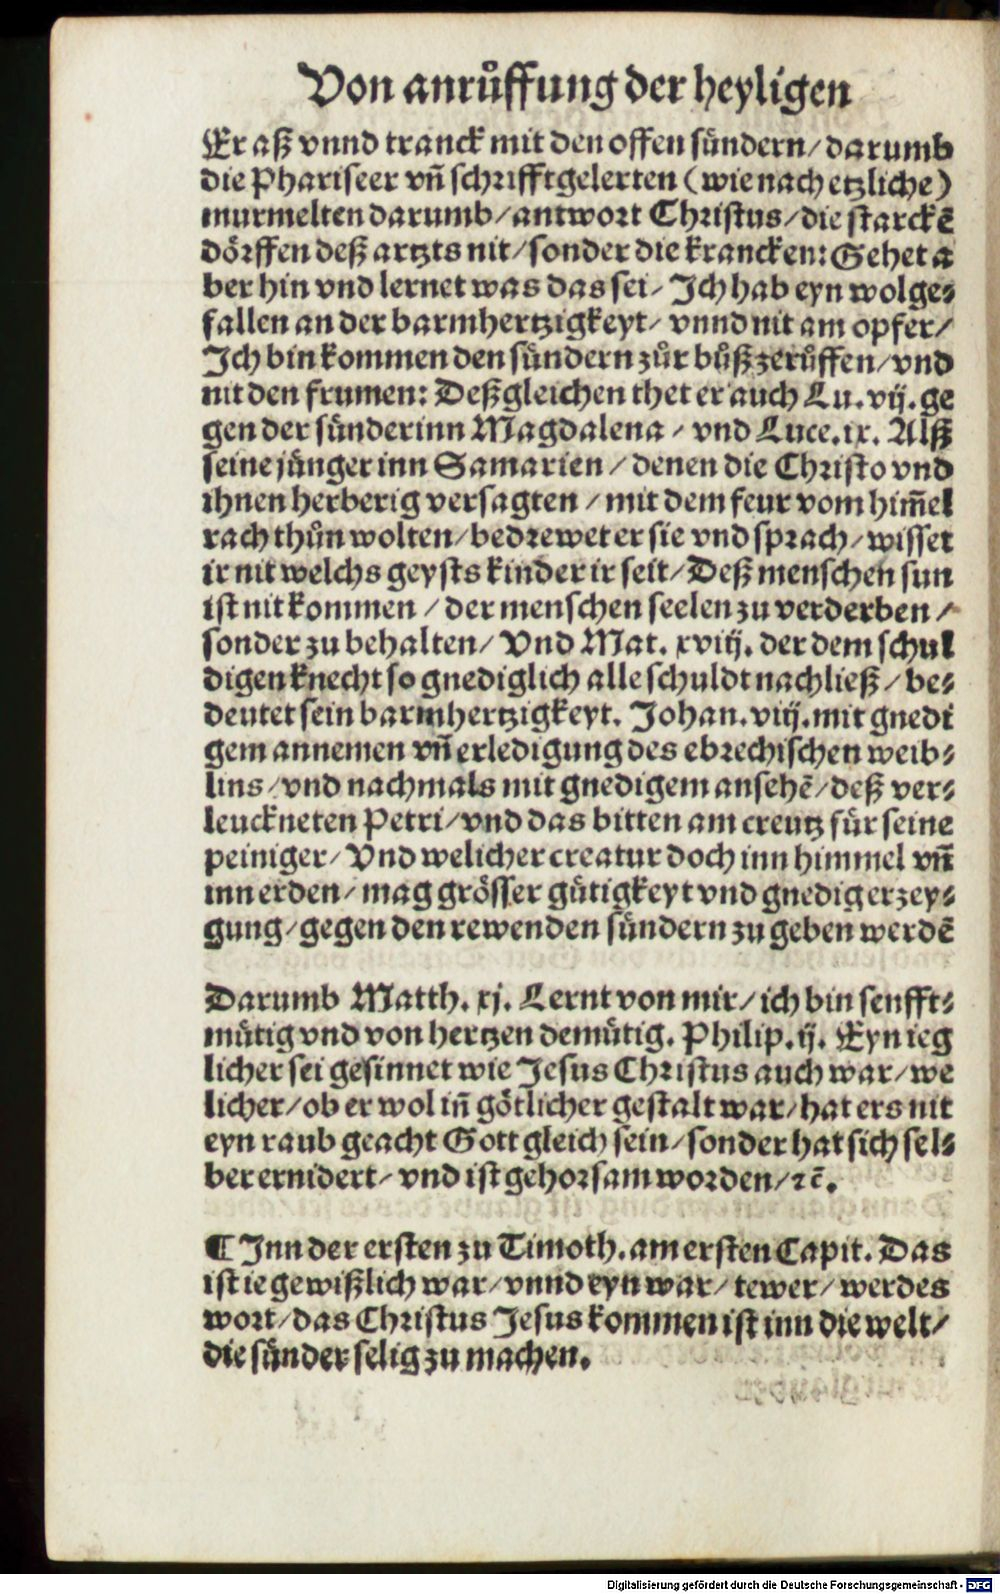 Von anrůffung der heyligen
Er aß vnnd tranck mit den offen sündern/ darumb
die Phariseer vñ schrifftgelerten (wie nach etzliche)
murmelten darumb/ antwort Christus/ die starckẽ
dörffen deß artzts nit/ sonder die krancken: Gehet a
ber hin vnd lernet was das sei/ Ich hab eyn wolge⸗
fallen an der barmhertzigkeyt/ vnnd nit am opfer/
Ich bin kommen den sündern zůr bůß zerůffen/ vnd
nit den frumen: Deßgleichen thet er auch Lu. vij. ge
gen der sünderinn Magdalena/ vnd Luce. ix. Alß
seine jünger inn Samarien/ denen die Christo vnd
ihnen herberig versagten/ mit dem feur vom him̃el
rach thůn wolten/ bedrewet er sie vnd sprach/ wisset
ir nit welchs geysts kinder ir seit/ Deß menschen sun
ist nit kommen/ der menschen seelen zu verderben/
sonder zu behalten/ Vnd Mat. xviij. der dem schul
digen knecht so gnediglich alle schuldt nachließ/ be⸗
deutet sein barmhertzigkeyt. Johan. viij. mit gnedi
gem annemen vñ erledigung des ebrechischen weib⸗
lins/ vnd nachmals mit gnedigem ansehẽ/ deß ver⸗
leuckneten Petri/ vnd das bitten am creutz für seine
peiniger/ Vnd welicher creatur doch inn himmel vñ
inn erden/ mag grösser gütigkeyt vnd gnedig erzey⸗
gung/ gegen den rewenden sündern zu geben werdẽ
Darumb Matth. xj. Lernt von mir/ ich bin senfft⸗
mütig vnd von hertzen demütig. Philip. ij. Eyn ieg
licher sei gesinnet wie Jesus Christus auch war/ we
licher/ ob er wol iñ götlicher gestalt war/ hat ers nit
eyn raub geacht Gott gleich sein/ sonder hat sich sel⸗
ber ernidert/ vnd ist gehorsam worden/ ꝛc̃.
¶ Inn der ersten zu Timoth. am ersten Capit. Das
ist ie gewißlich war/ vnnd eyn war/ tewer/ werdes
wort/ das Christus Jesus kommen ist inn die welt/
die sünder selig zu machen.
Digitalisierung gefördert durch die Deutsche Forschungsgemeinschaft - DFG